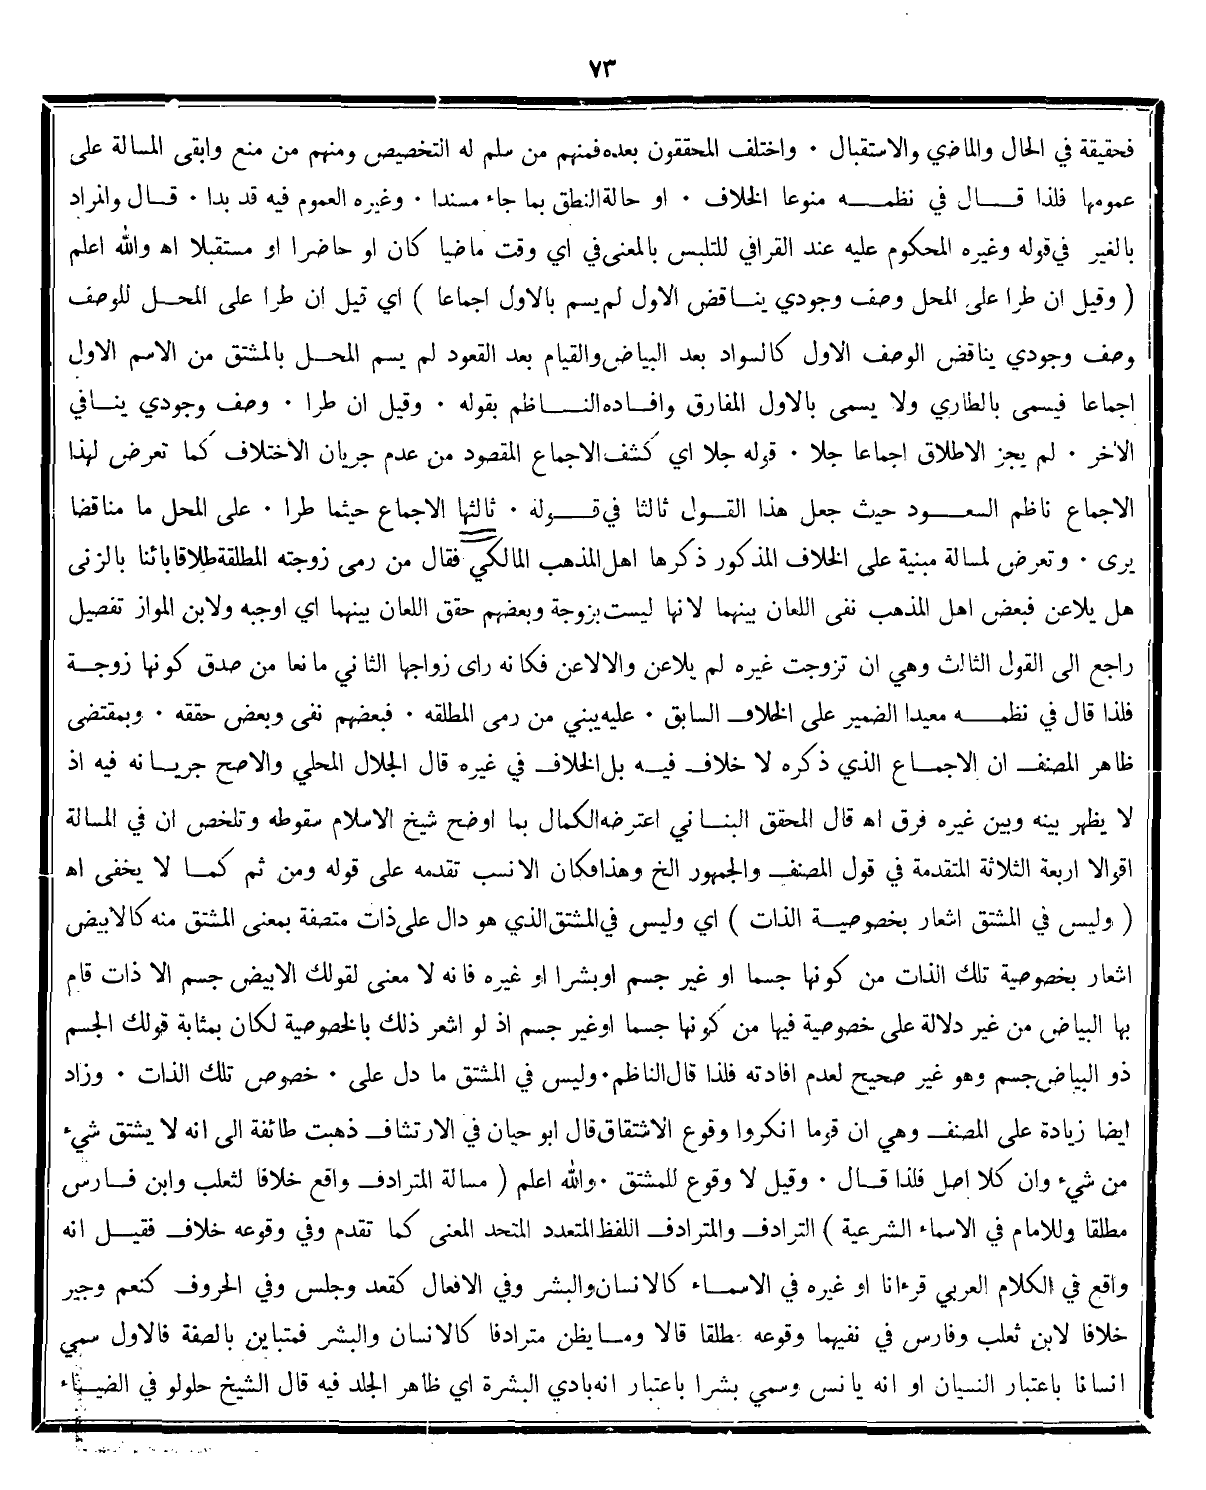 ٧٣
فحقيقة في الحال والماضي والاستقبال ٠ واختلف المحققون بعده فمنهم من سلم له التخصيص ومنهم من منع وابقى المسالة على
عمومها فلذا قال في نظمه منوعا الخلاف ٠ او حالة النطق بما جاء مسندا ٠ وغيره العموم فيه قد بدا ٠ قال والمراد
بالغير في قوله وغيره المحكوم عليه عند القرافي للتلبس بالمعنى في اي وقت ماضيا كان او حاضرا او مستقبلا اه والله اعلم
( وقيل ان طرا على المحل وصف وجودي يناقض الاول لم يسم بالاول اجماعا ) اي قيل ان طرا على المحل للوصف
وصف وجودي يناقض الوصف الاول كالسواد بعد البياض والقيام بعد القعود لم يسم المحل بالمشتق من الاسم الاول
اجماعا فيسمى بالطاري ولا يسمى بالاول المفارق وافاده الناظم بقوله ٠ وقيل ان طرا ٠ وصف وجودي ينافي
الاخر ٠ لم يجز الاطلاق اجماعا جلا ٠ قوله جلا اي كشف الاجماع المقصود من عدم جريان الاختلاف كما تعرض لهذا
الاجماع ناظم السعود حيث جعل هذا القول ثالثا في قوله ٠ ثالثها الاجماع حيثما طرا ٠ على المحل ما مناقضا
يرى ٠ وتعرض لمسالة مبنية على الخلاف المذكور ذكرها اهل المذهب المالكي فقال من رمى زوجته المطلقة طلاقا بائنا بالزنى
هل يلاعن فبعض اهل المذهب نفى اللعان بينهما لانها ليست بزوجة وبعضهم حقق اللعان بينهما اي اوجبه ولابن المواز تفصيل
راجع الى القول الثالث وهي ان تزوجت غيره لم يلاعن والالاعن فكانه راى زواجها الثاني مانعا من صدق كونها زوجة
فلذا قال في نظمه معيدا الضمير على الخلاف السابق ٠ عليه يبني من رمى المطلقه ٠ فبعضهم نفى وبعض حققه ٠ وبمقتضى
ظاهر المصنف ان الاجماع الذي ذكره لا خلاف فيه بل الخلاف في غيره قال الجلال المحلي والاصح جريانه فيه اذ
لا يظهر بينه وبين غيره فرق اه قال المحقق البناني اعترضه الكمال بما اوضح شيخ الاسلام سقوطه وتلخص ان في المسالة
اقوالا اربعة الثلاثة المتقدمة في قول المصنف والجمهور الخ وهذا فكان الانسب تقدمه على قوله ومن ثم كما لا يخفى اه
( وليس في المشتق اشعار بخصوصية الذات ) اي وليس في المشتق الذي هو دال على ذات متصفة بمعنى المشتق منه كالابيض
اشعار بخصوصية تلك الذات من كونها جسما او غير جسم او بشرا او غيره فانه لا معنى لقولك الابيض جسم الا ذات قام
بها البياض من غير دلالة على خصوصية فيها من كونها جسما اوغير جسم اذ لو اشعر ذلك بالخصوصية لكان بمثابة قولك الجسم
ذو البياض جسم وهو غير صحيح لعدم افادته فلذا قال الناظم ٠ وليس في المشتق ما دل على ٠ خصوص تلك الذات ٠ وزاد
ايضا زيادة على المصنف وهي ان قوما انكروا وقوع الاشتقاق قال ابو حيان في الارتشاف ذهبت طائفة الى انه لا يشتق شيء
من شيء وان كلا اصل فلذا قال ٠ وقيل لا وقوع للمشتق ٠ والله اعلم ( مسالة المترادف واقع خلافا لثعلب وابن فارس
مطلقا وللامام في الاسماء الشرعية ) الترادف والمترادف اللفظ المتعدد المتحد المعنى كما تقدم وفي وقوعه خلاف فقيل انه
واقع في الكلام العربي قرءانا او غيره في الاسماء كالانسان والبشر وفي الافعال كقعد وجلس وفي الحروف كنعم وجير
خلافا لابن ثعلب وفارس في نفيهما وقوعه مطلقا قالا وما يظن مترادفا كالانسان والبشر فمتباين بالصفة فالاول سمي
انسانا باعتبار النسيان او انه يانس وسمي بشرا باعتبار انه بادي البشرة اي ظاهر الجلد فيه قال الشيخ حلولو في الضياء